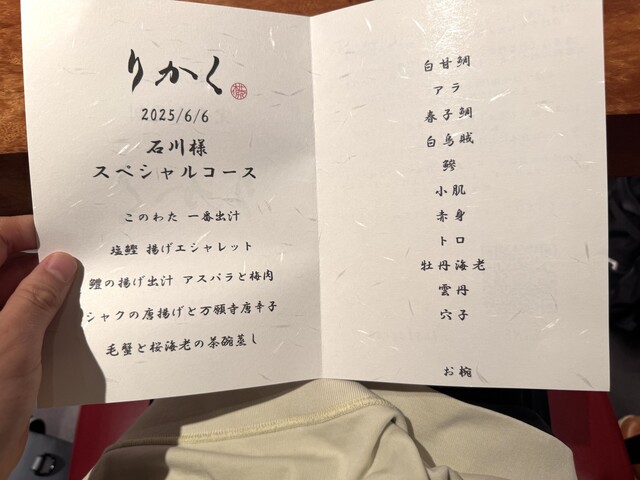 りかく
2025/6/6
石川様
スペシャルコース
このわた 一番出汁
塩鰹 揚げエシャレット
鱧の揚げ出汁 アスパラと梅肉
シャクの唐揚げと万願寺唐辛子
毛蟹と桜海老の茶碗蒸し
白甘鯛
アラ
春子鯛
白烏賊
鰺
小肌
赤身
トロ
牡丹海老
雲丹
穴子
お椀